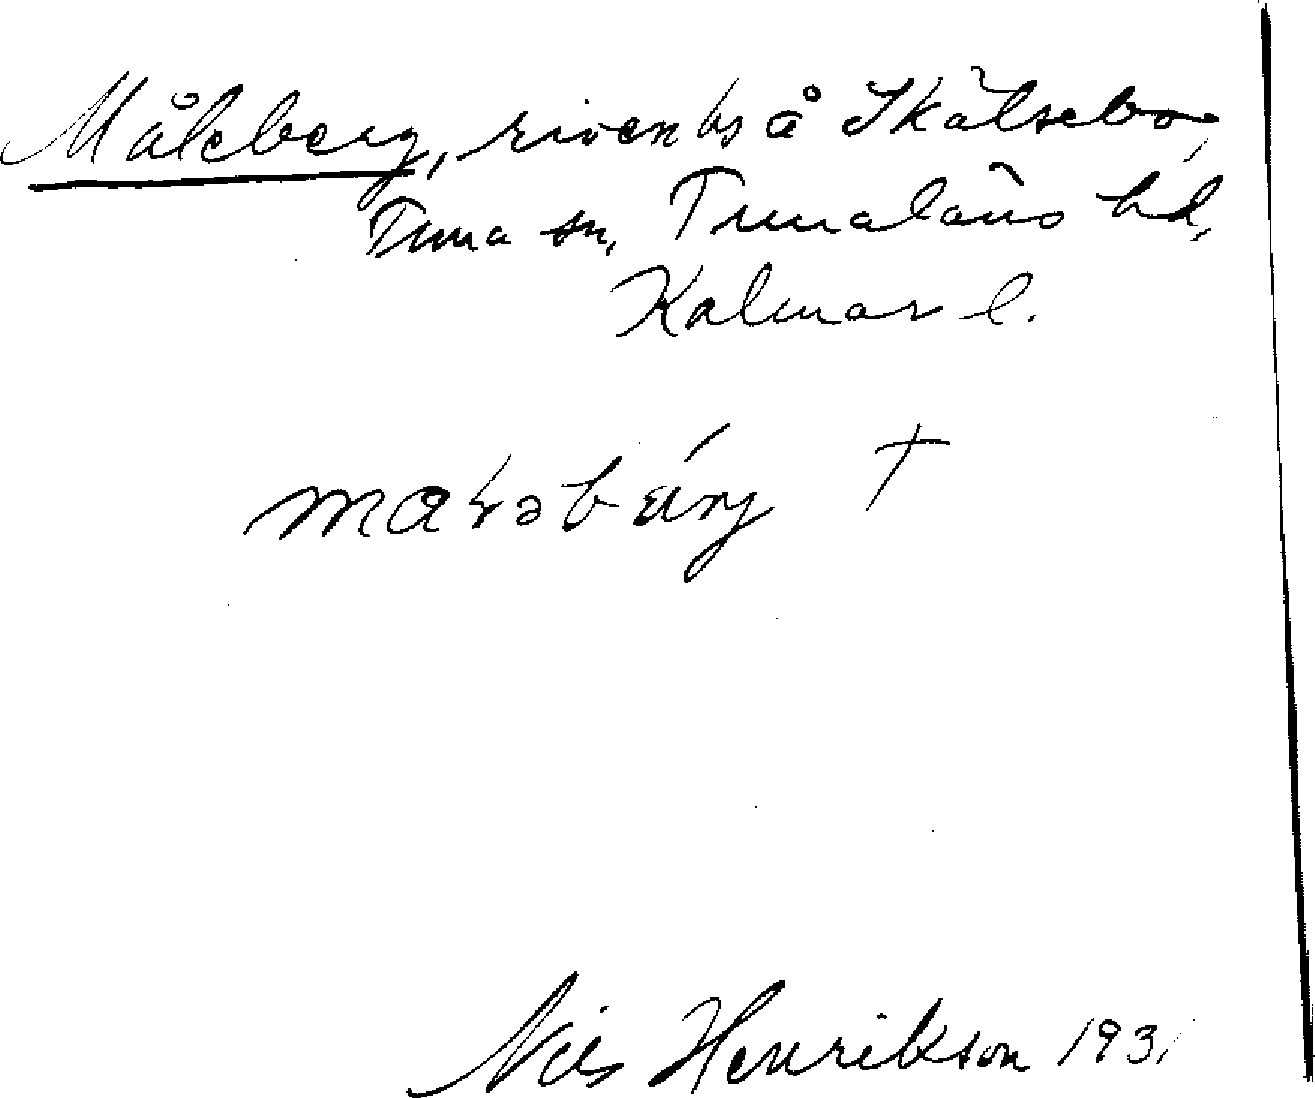 Måleberg, riven bs å Skälsebo,
Tuna sn, Tunaläns hd,
Kalmar l.
†
Nils Henrikson 1931